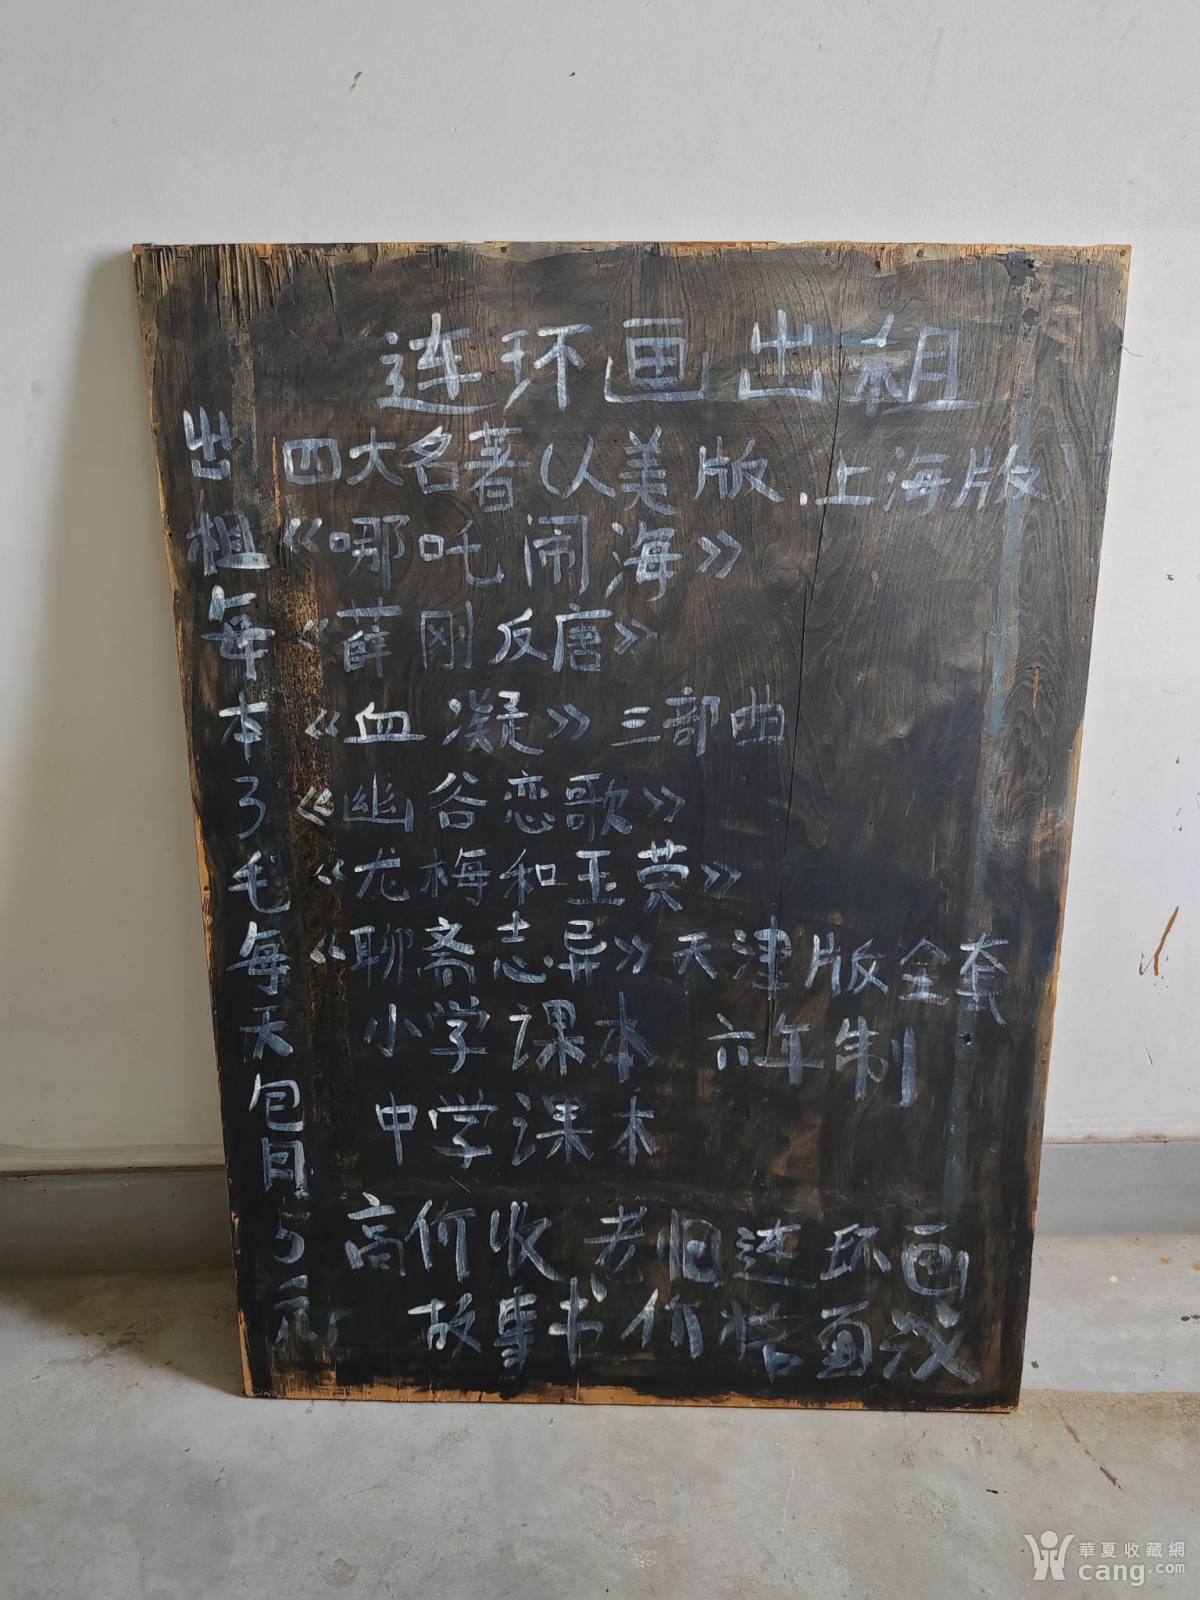 连环画出租
出租每本3毛每天包月5元
四大名著(人美版.上海版)
《哪吒闹海》
《薛刚反唐》
《血凝》三部曲
《幽谷恋歌》
《龙梅和玉荣》
《聊斋志异》天津版全套
小学课本 六年制
中学课本
高价收 老旧连环画
故事书价格面议
華夏收藏網
cang.com